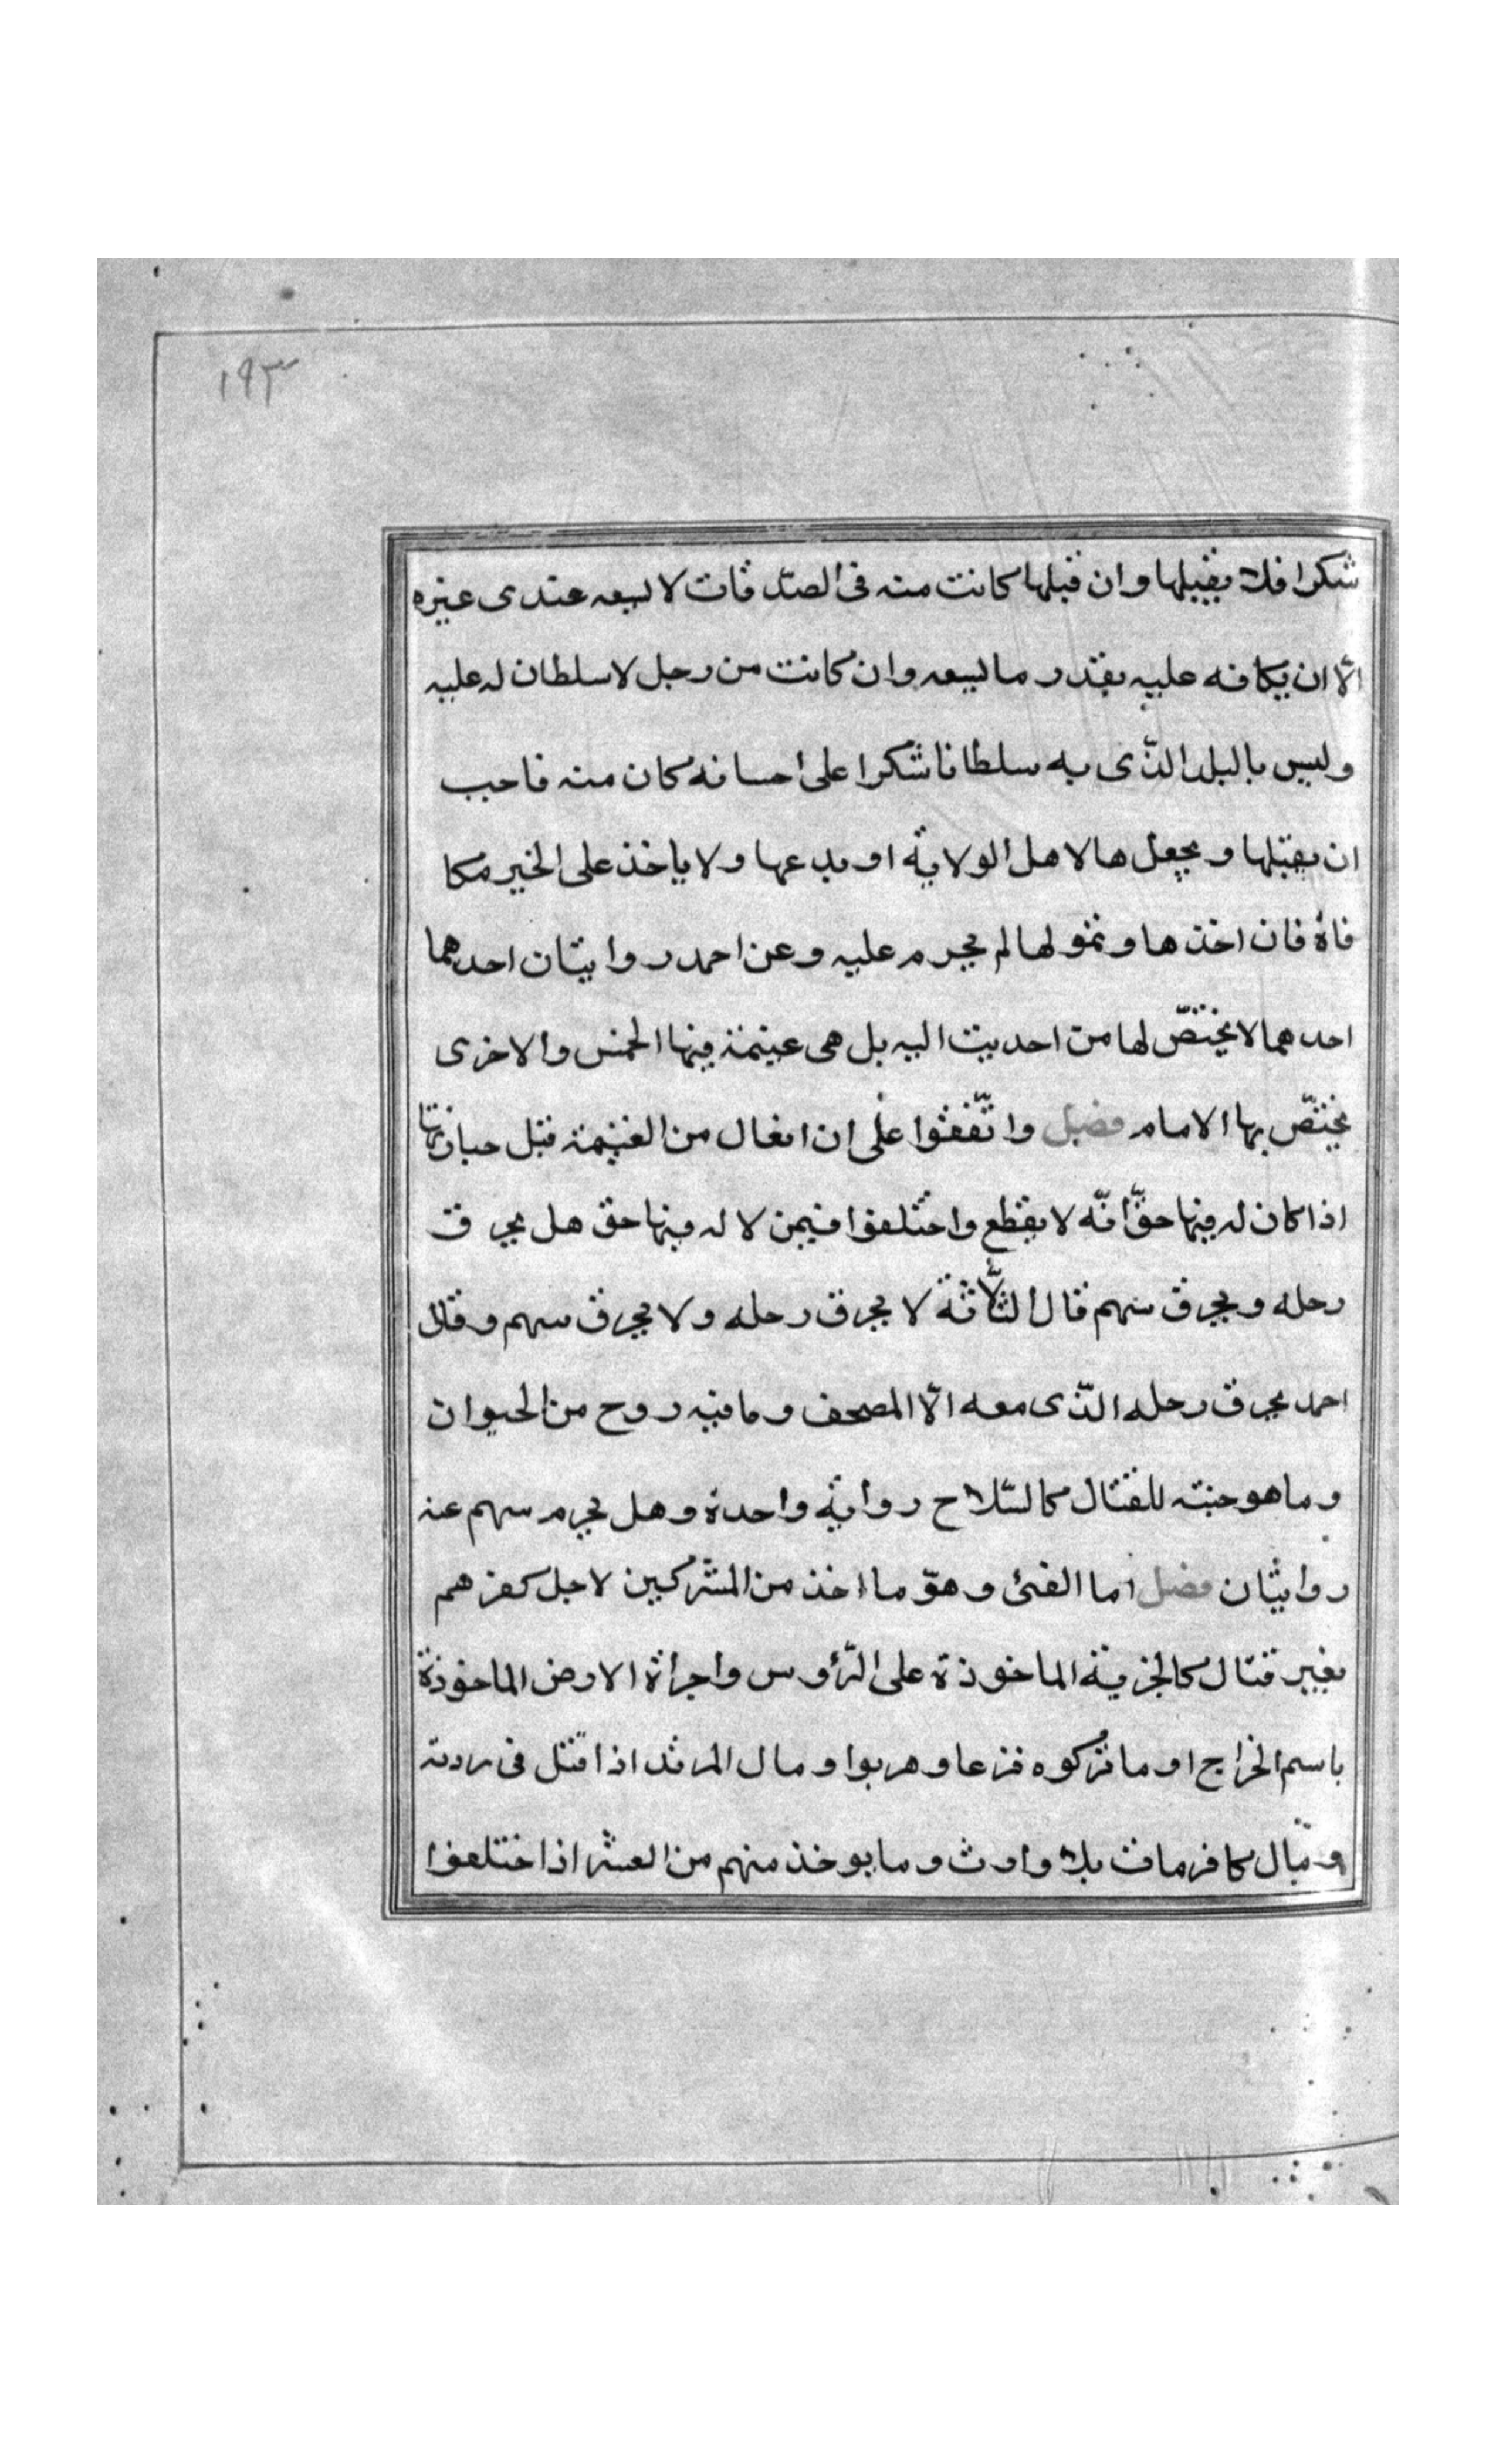 ١٩٣
شكرا فلا يقبلها وان قبلها كانت منه فى الصدقات لا يسعه عندى غيره
الّا ان يكافه عليه بقدر ما يسعه وان كانت من رجل لا سلطان له عليه
وليس بالبلد الذّى به سلطانا شكرا على احسانه كان منه فاحب
ان يقبلها ويجعلها لاهل الولاية او يدعها ولا ياخذ على الخير مكا
فاة فان اخذها وتمولها لم يحرم عليه وعن احمد روايتان احدهما
احدهما لا يختصّ لها من احديت اليه بل هى غنيمة فيها الخمس والاخرى
يختصّ بها الامام فصل واتّفقوا على ان الغال من الغنيمة قبل حيازتها
اذا كان له فيها حقّ انّه لا يقطع واختلفوا فيمن لا له فيها حق هل يحرق
رحله ويحرق سهم قال الثلّاثة لا يحرق رحله ولا يحرق سهم وقال
احمد يحرق رحله الذّى معه الّا المصحف وما فيه روح من الحيوان
وما هو جنته للقتال كالسّلاح رواية واحدة وهل يحرم سهم عنه
روايتان فصل اما الفئ وهوّ ما اخذ من المشركين لاجل كفرهم
بغير قتال كالجزية الماخوذة على الرّؤوس واجراة الارض الماخوذة
باسم الخراج او ما تركوه فزعا وهربوا ومال المرتد اذا قتل فى ردته
ومال كافر مات بلا وارث وما يوخذ منهم من العشر اذا ختلفوا